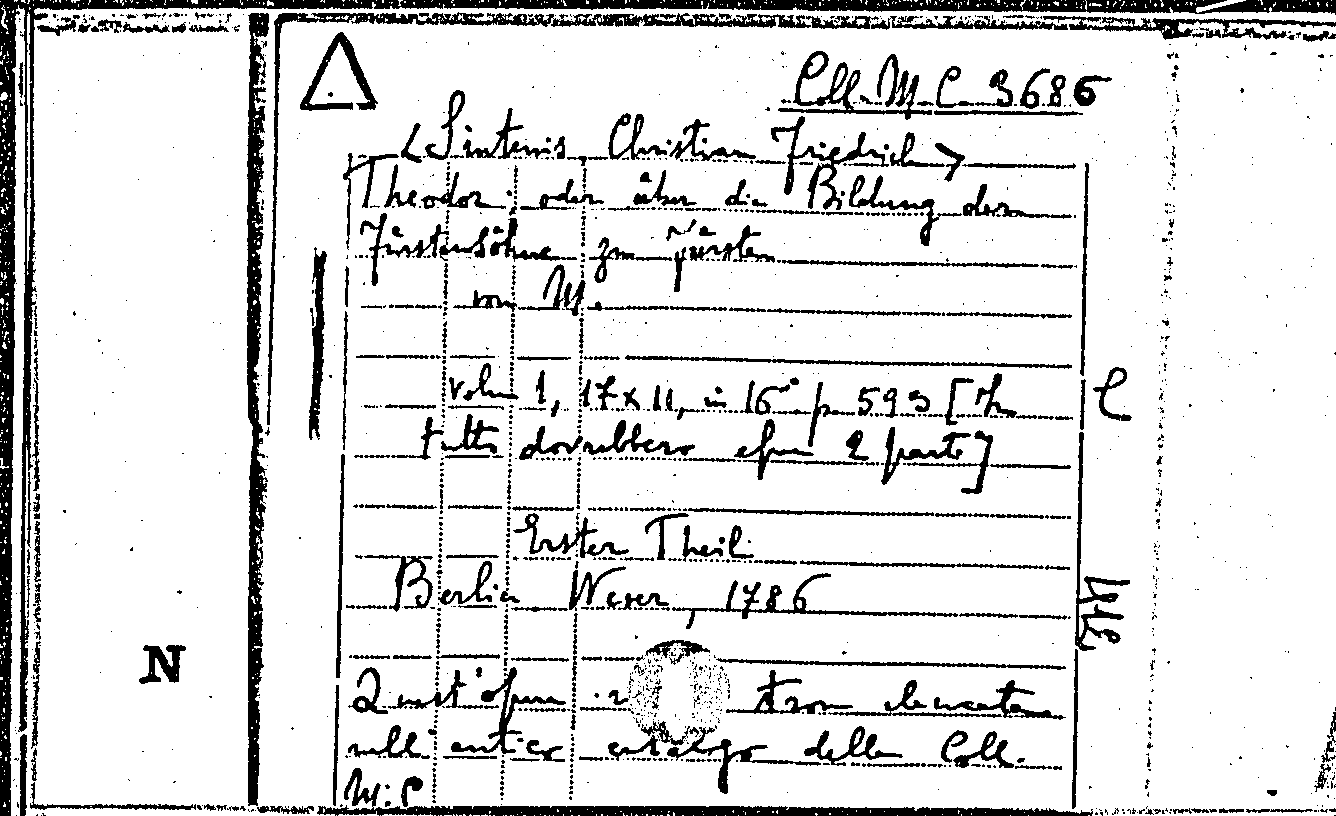 Coll. M. C. 3686
<Sintenis Christian Friedrich>
Theodor, oder über die Bildung der
Fürstensöhne zu Fürsten
von M.
volu 1, 17 x 11, in 16° p. 593 [In
tutto dovrebbero essere 2 parte]
C
Erster Theil
Berlin Wever, 1786
N
Quest'opera si trova elencata
nell'antico catalogo della Coll.
M. C